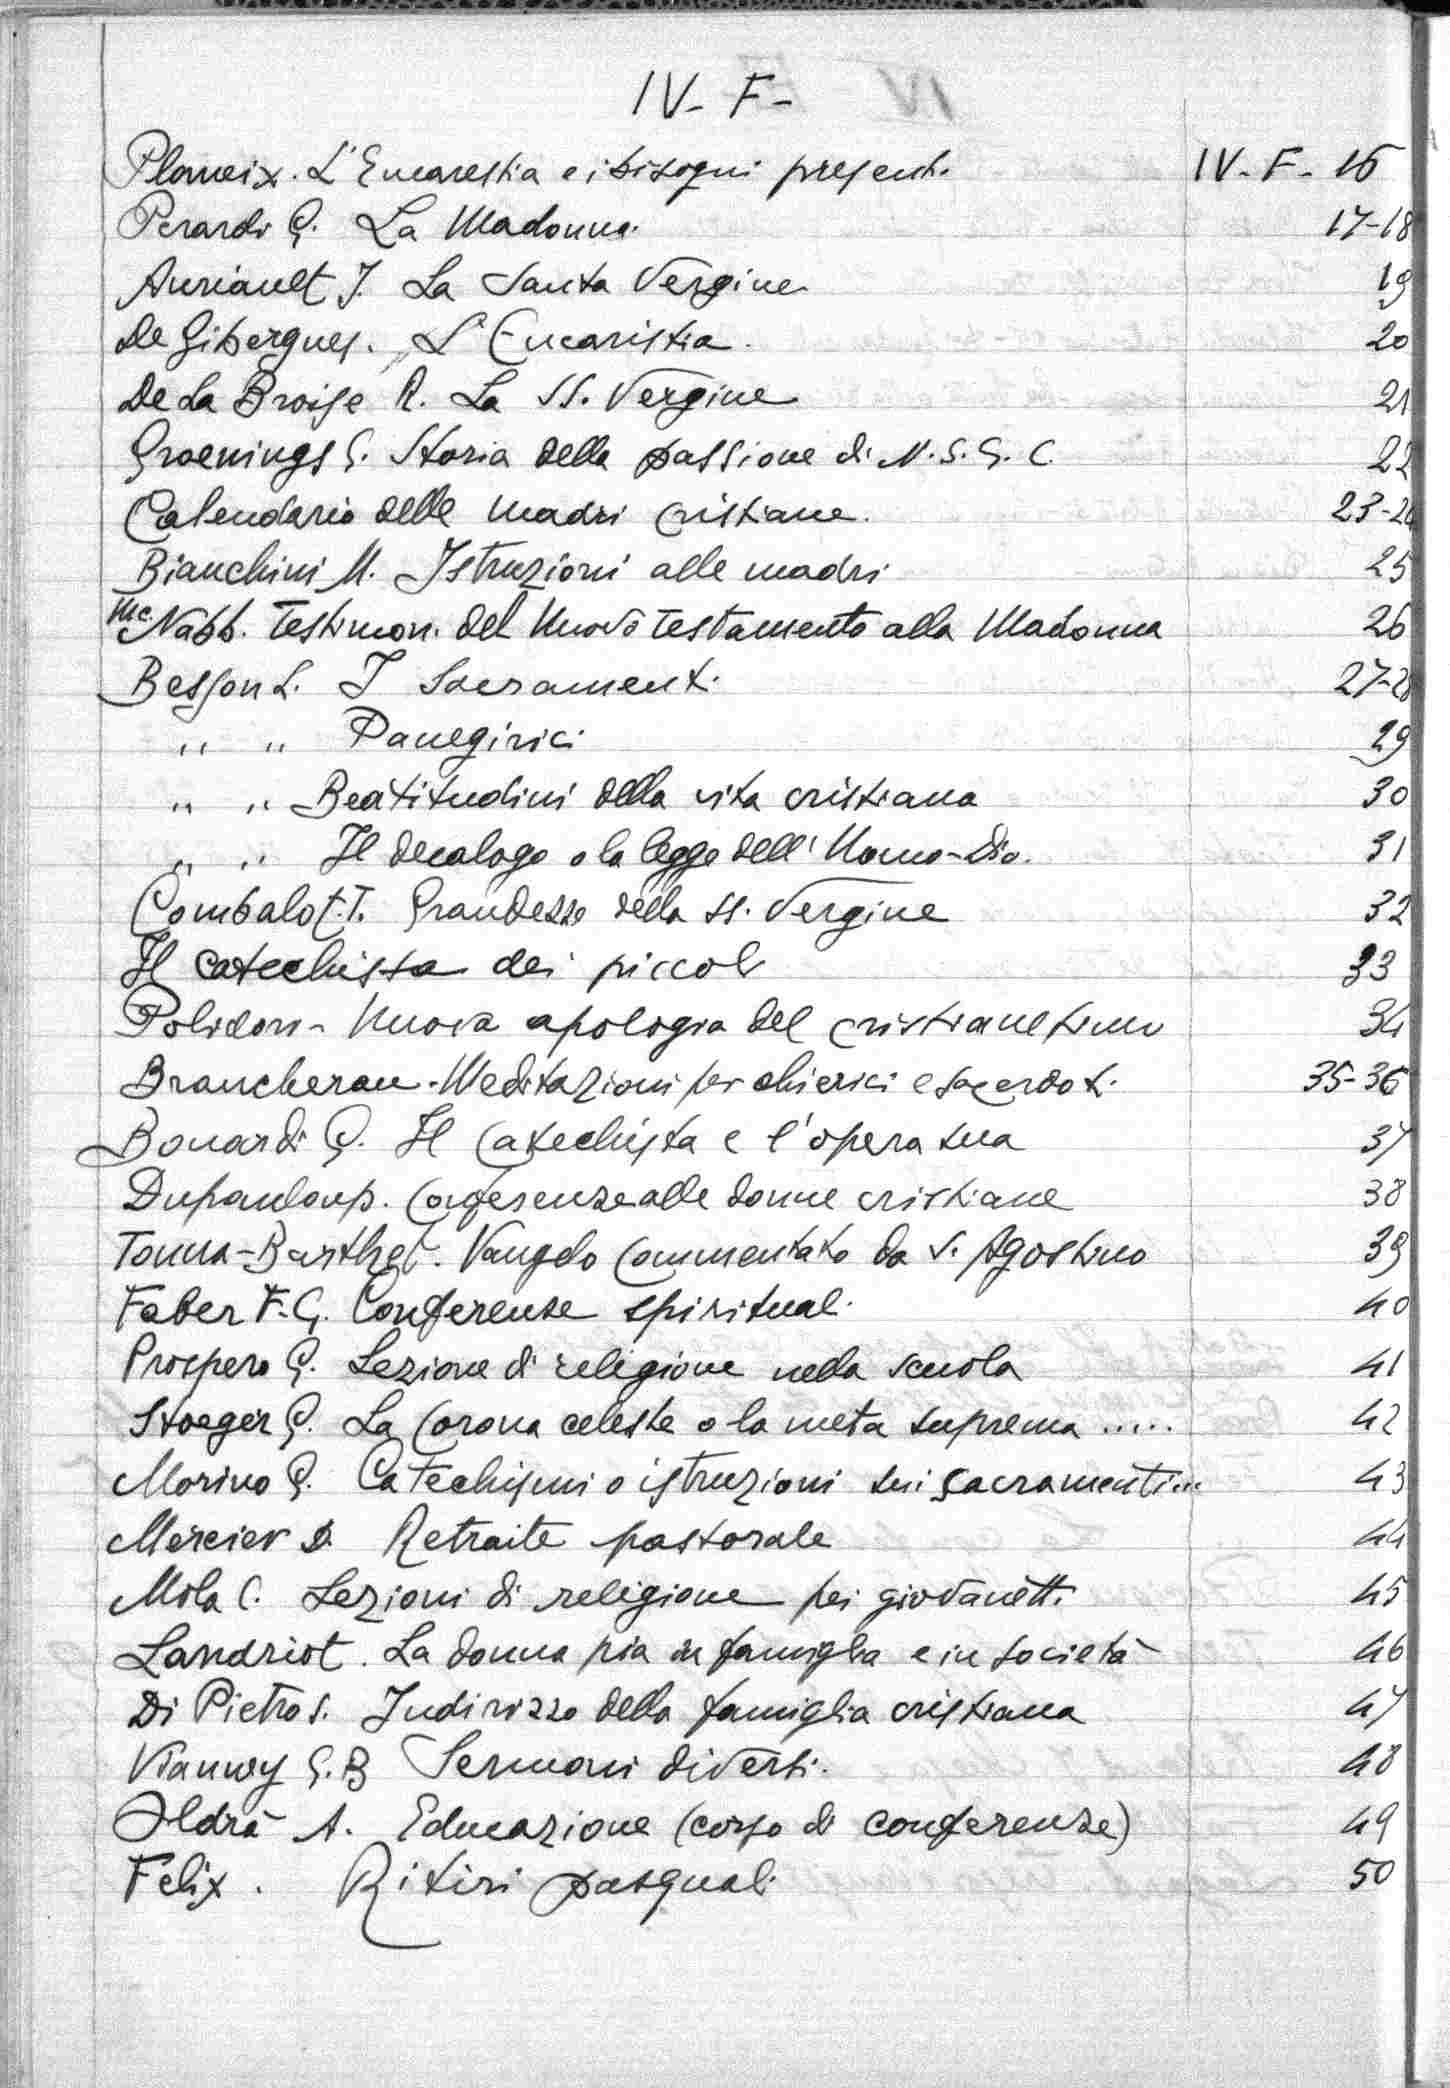 IV - F -
Planeix. L'Eucarestia e i bisogni presenti IV - F - 16
Perardi G. La Madonna. 17-18
Auriault J. La Santa Vergine 19
De Gibergues. L'Eucaristia. 20
De La Broise R. La SS. Vergine 21
Groenings G. Storia della passione di N. S. G. C. 22
Calendario delle madri cristiane. 23-24
Bianchini M. Istruzioni alle madri 25
Mc. Nabb. Testimon. del Nuovo Testamento alla Madonna 26
Besson L. I Sacramenti 27-28
" " Panegirici 29
" " Beatitudini della vita cristiana 30
" " Il decalogo o la legge dell'Uomo-Dio. 31
Combalot T. Grandezze della SS. Vergine 32
Il catechista dei piccoli 33
Polidori - Nuova apologia del cristianesimo 34
Brancherau - Meditazioni per chierici e sacerdoti 35-36
Bonardi G. Il Catechista e l'opera sua 37
Dupanloup. Conferenze alle donne cristiane 38
Tonna-Barthet. Vangelo commentato da S. Agostino 39
Faber F. G. Conferenze spirituali 40
Prospero G. Lezione di religione nella scuola 41
Stoeger G. La Corona celeste o la meta suprema ..... 42
Morino G. Catechismi o istruzioni sui sacramenti... 43
Mercier D. Retraite pastorale 44
Mola C. Lezioni di religione pei giovanetti 45
Landriot. La donna pia in famiglia e in società 46
Di Pietro S. Indirizzo della famiglia cristiana 47
Vianney G. B Sermoni diversi. 48
Aldrà A. Educazione (corso di conferenze) 49
Felix. Ritiri pasquali 50